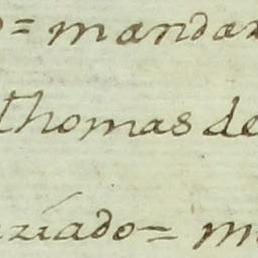 = mandar
thomas de
ziado = m